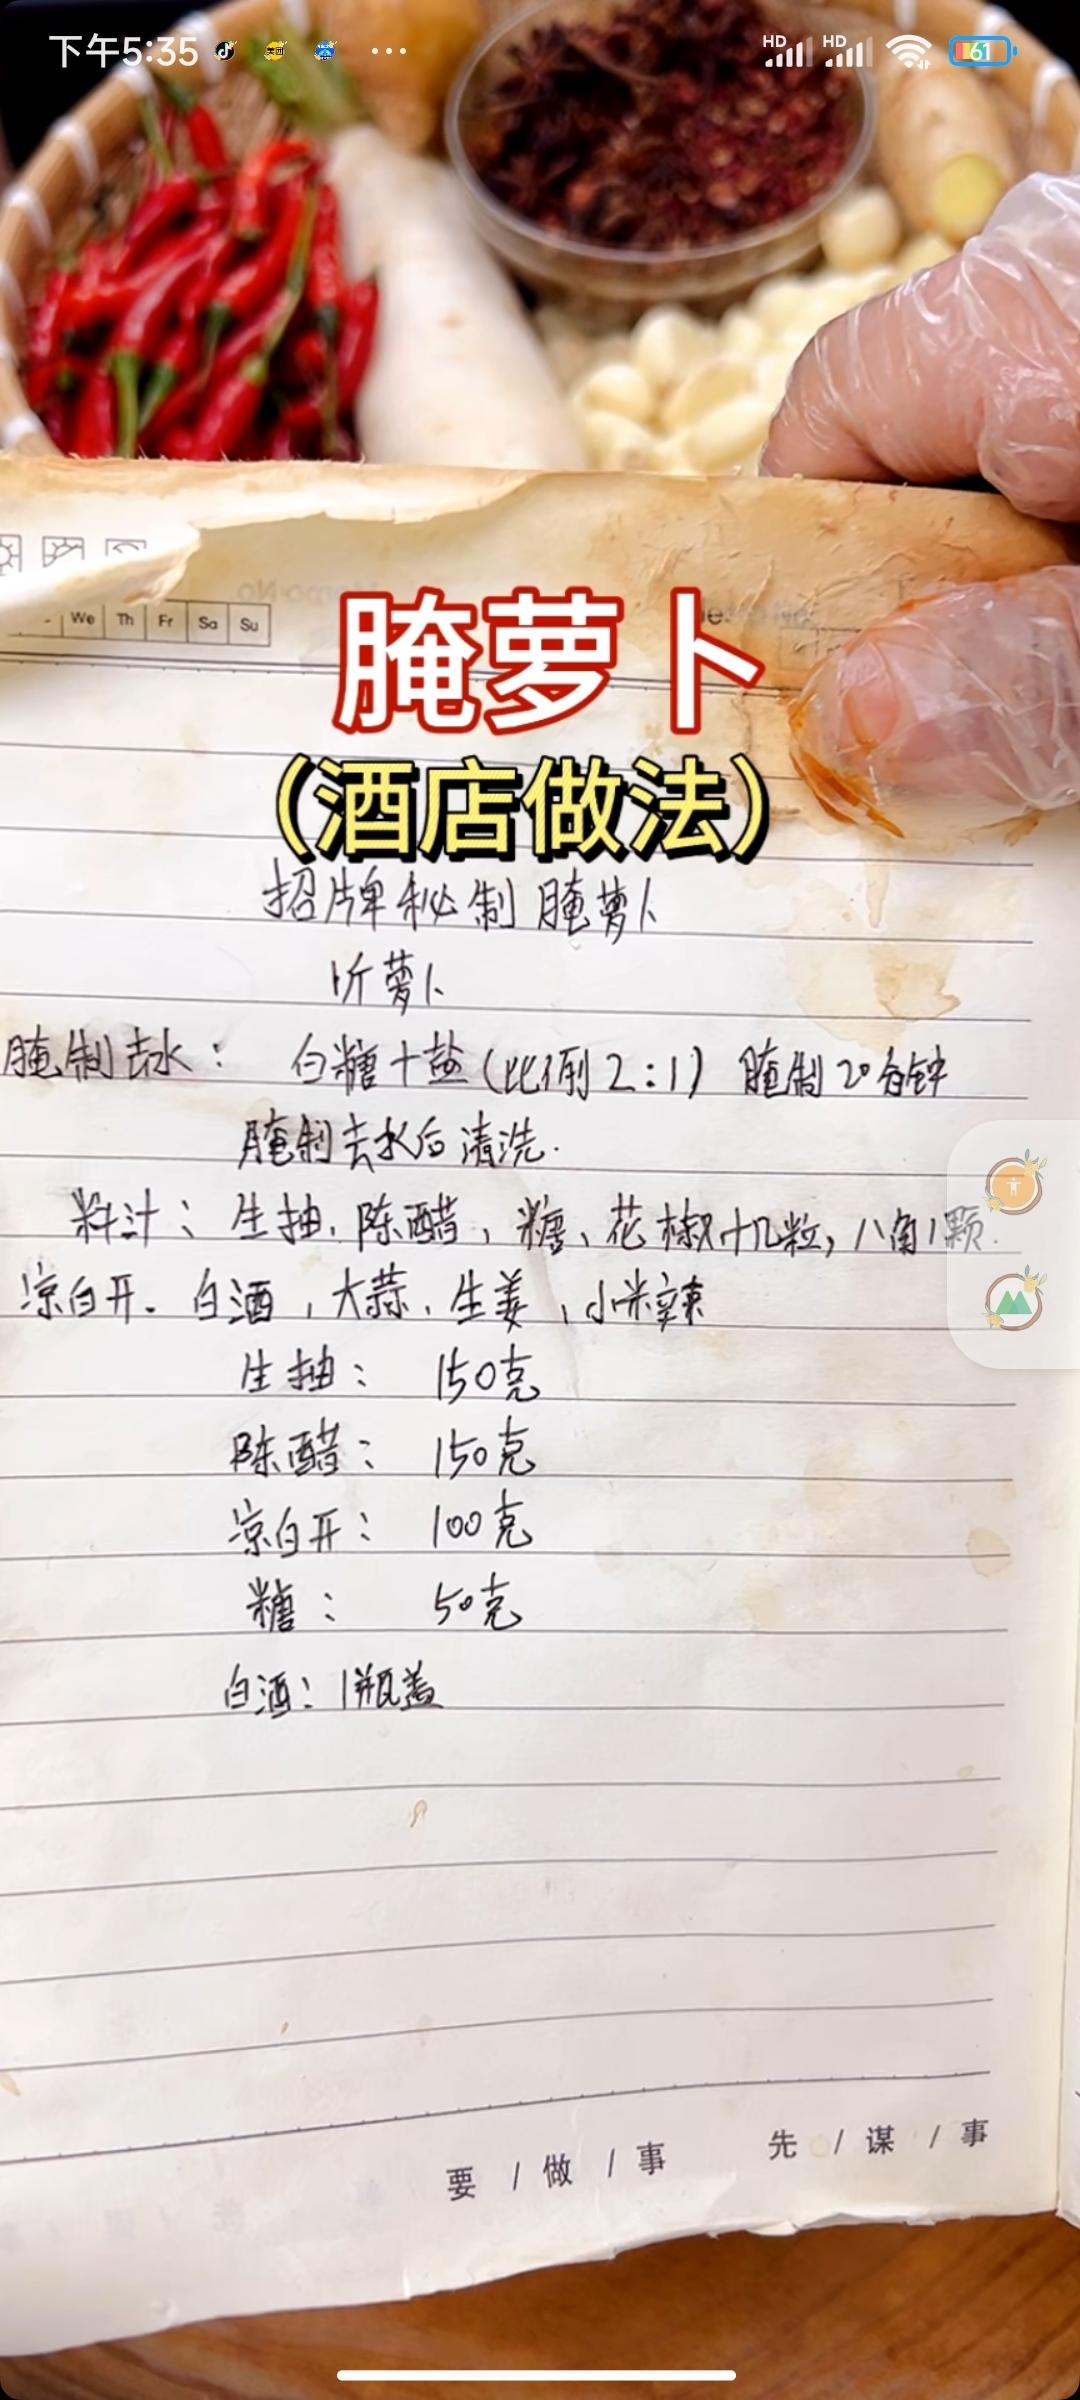 下午5:35
HD HD 61
We Th Fr Sa Su
腌萝卜
（酒店做法）
招牌秘制 腌萝卜
1斤萝卜
腌制去水： 白糖+盐（比例2:1） 腌制20分钟
腌制去水后清洗.
料汁：生抽、陈醋，糖、花椒十几粒，八角1颗.
凉白开. 白酒，大蒜、生姜，小米辣
生抽： 150克
陈醋： 150克
凉白开： 100克
糖： 50克
白酒：1瓶盖
要/做/事 先/谋/事